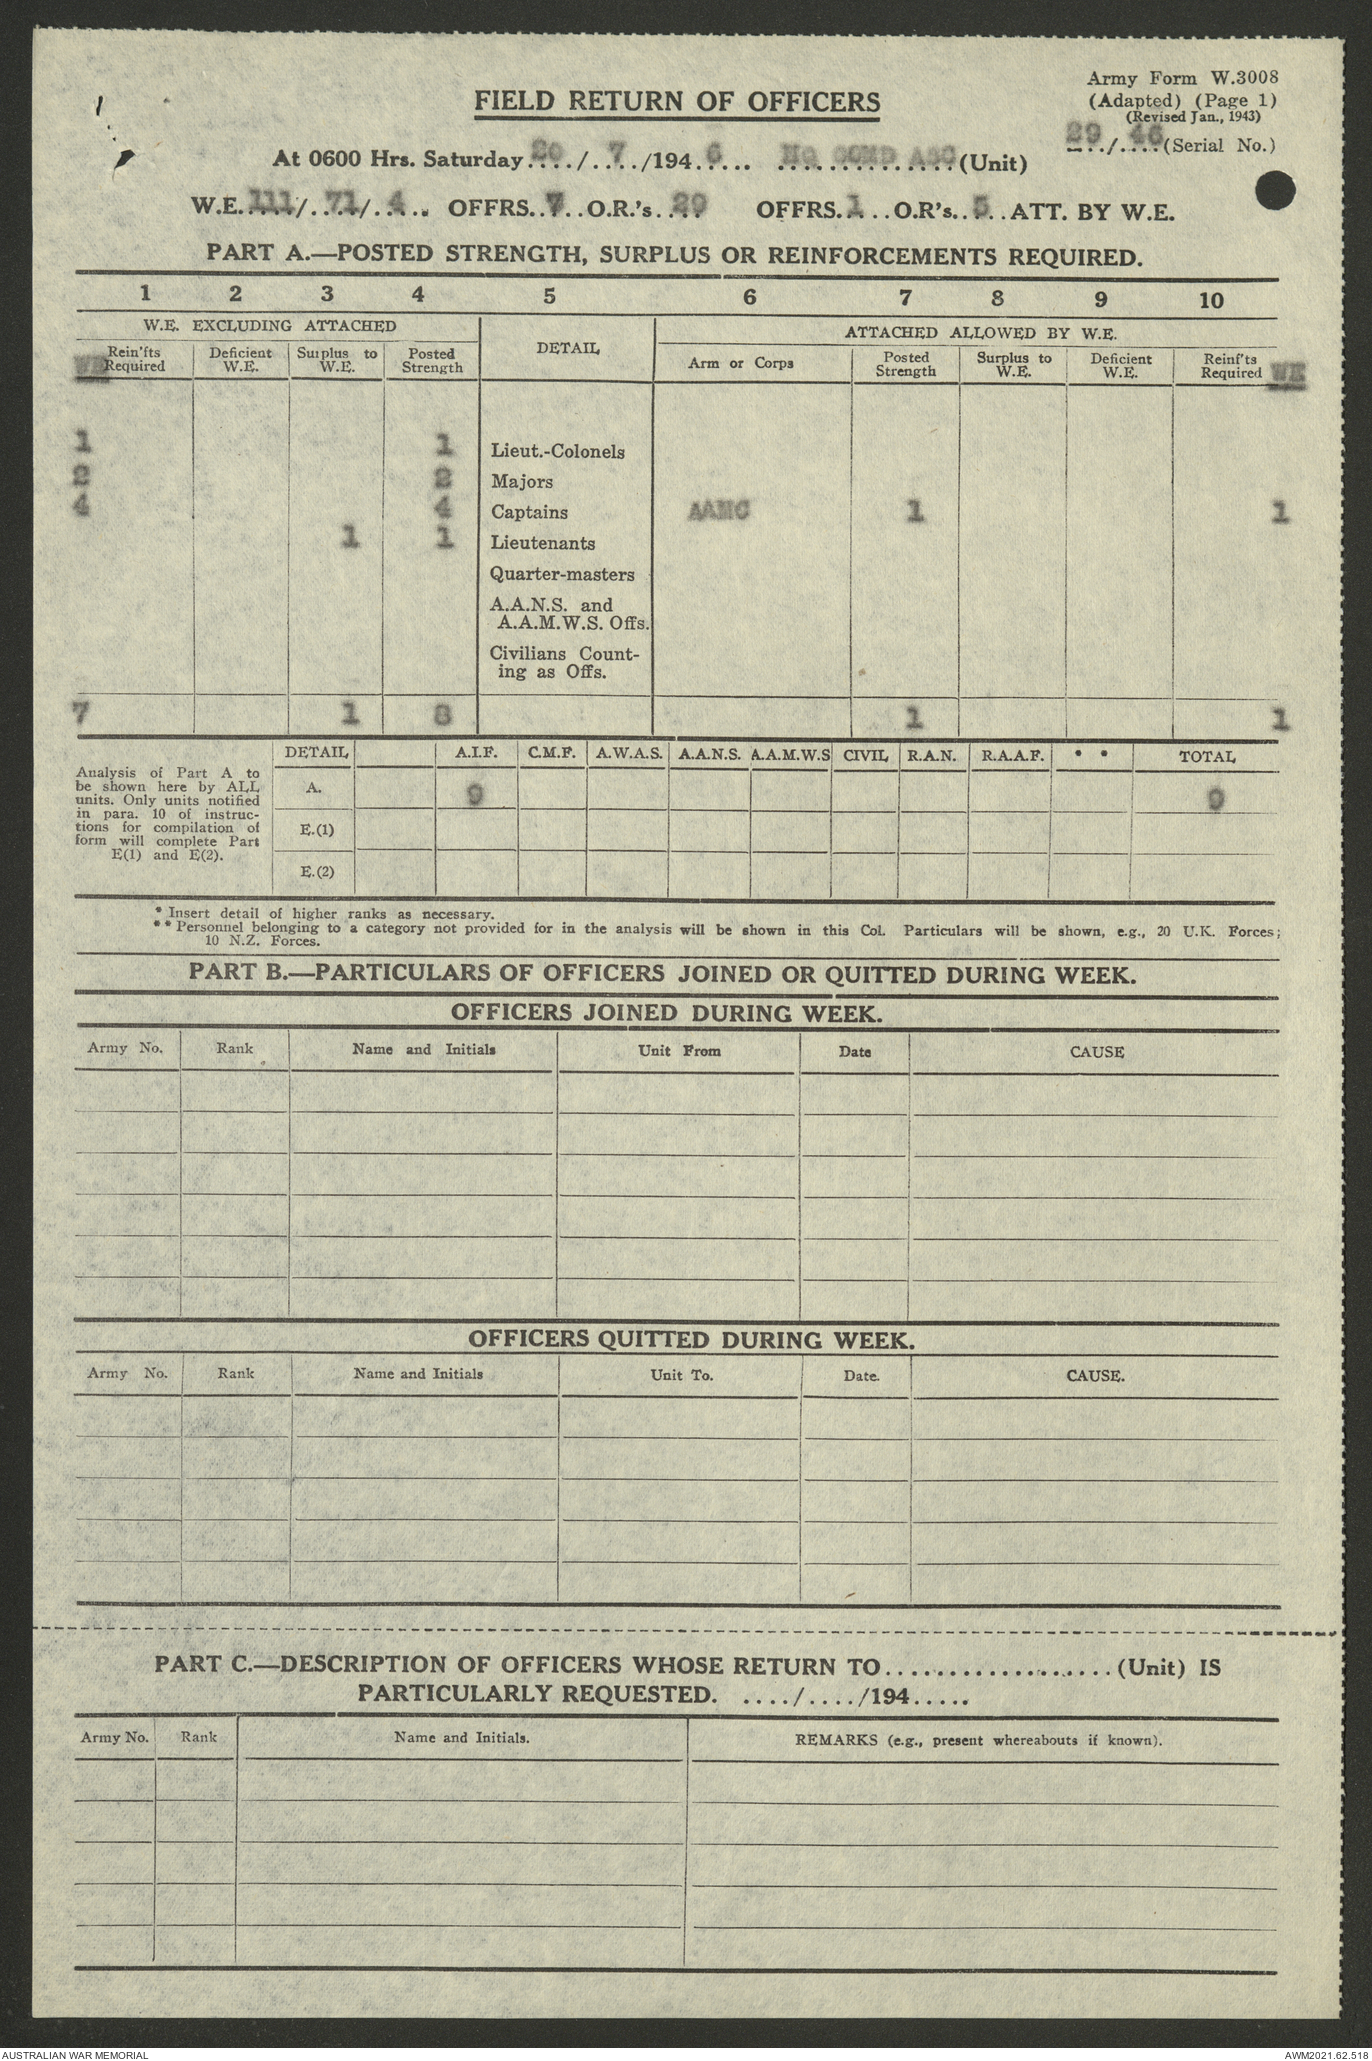 Army Form W.3008
FIELD RETURN OF OFFICERS
(Adapted) (Page 1)
(Revised Jan., 1943)
29/46 (Serial No.)
At 0600 Hrs. Saturday 20/7/1946 HQ COMD ASC (Unit)
W.E. 111/71/4 OFFRS. 7 O.R.'s 29 OFFRS. 1 O.R's. 5 ATT. BY W.E.
PART A.—POSTED STRENGTH, SURPLUS OR REINFORCEMENTS REQUIRED.
1 2 3 4 5 6 7 8 9 10
W.E. EXCLUDING ATTACHED DETAIL ATTACHED ALLOWED BY W.E.
WE Rein'fts Required Deficient W.E. Surplus to W.E. Posted Strength Arm or Corps Posted Strength Surplus to W.E. Deficient W.E. Reinf'ts Required WE
1 1 Lieut.-Colonels
2 2 Majors
4 4 Captains AAMC 1 1
1 1 Lieutenants
Quarter-masters
A.A.N.S. and
A.A.M.W.S. Offs.
Civilians Count-
ing as Offs.
7 1 8 1 1
DETAIL A.I.F. C.M.F. A.W.A.S. A.A.N.S. A.A.M.W.S CIVIL R.A.N. R.A.A.F. * * TOTAL
Analysis of Part A to
be shown here by ALL
units. Only units notified
in para. 10 of instruc-
tions for compilation of
form will complete Part
E(1) and E(2).
A. 9 9
E.(1)
E.(2)
* Insert detail of higher ranks as necessary.
** Personnel belonging to a category not provided for in the analysis will be shown in this Col. Particulars will be shown, e.g., 20 U.K. Forces;
10 N.Z. Forces.
PART B.—PARTICULARS OF OFFICERS JOINED OR QUITTED DURING WEEK.
OFFICERS JOINED DURING WEEK.
Army No. Rank Name and Initials Unit From Date CAUSE
OFFICERS QUITTED DURING WEEK.
Army No. Rank Name and Initials Unit To. Date. CAUSE.
PART C.—DESCRIPTION OF OFFICERS WHOSE RETURN TO................... (Unit) IS
PARTICULARLY REQUESTED. ..../..../194.....
Army No. Rank Name and Initials. REMARKS (e.g., present whereabouts if known).
AUSTRALIAN WAR MEMORIAL AWM2021.62.518